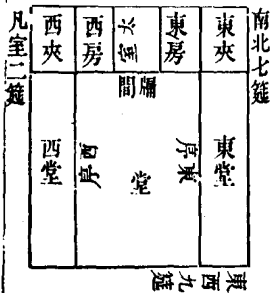 南北七筵
東夾
東房
大室
西房
西夾
牖間
東堂
東序
堂
西序
西堂
凡室二筵
東西九筵